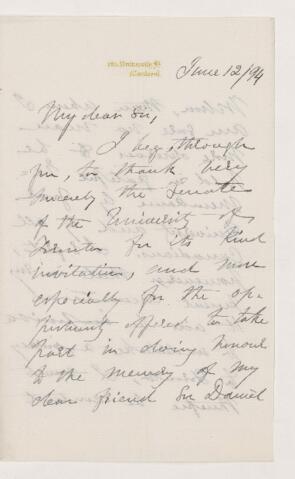 (London)
June 12/94
My dear Sir,
I beg, through
you, to thank very
sincerely the Senate
of the University of
Toronto for its kind
invitation, and more
especially for the op-
portunity offered to take
part in doing honour
to the memory of my
dear friend Sir Daniel